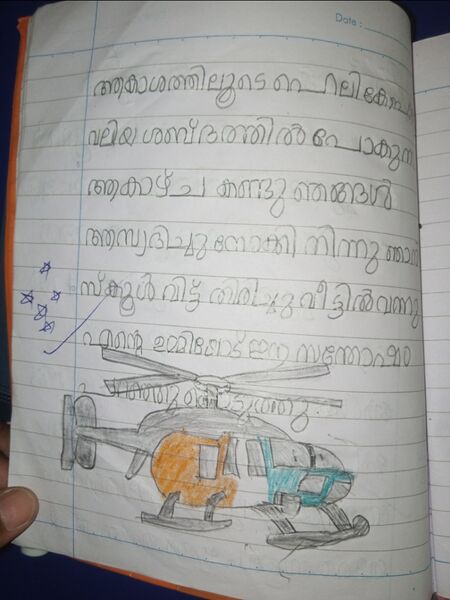 Date :
ആകാശത്തിലൂടെ ഹെലികോപ്
വലിയ ശബ്ദത്തിൽ പോകുന
ആകാഴ്ച കണ്ടു ഞങ്ങൾ
ആസ്വദിച്ചു നോക്കി നിന്നു ഞാൻ
സ്കൂൾ വിട്ട് തിരിച്ചു വീട്ടിൽ വന്നു
എന്റെ ഉമ്മിയോട് ഈ സന്തോഷം
പറഞ്ഞു കൊടുത്തു.